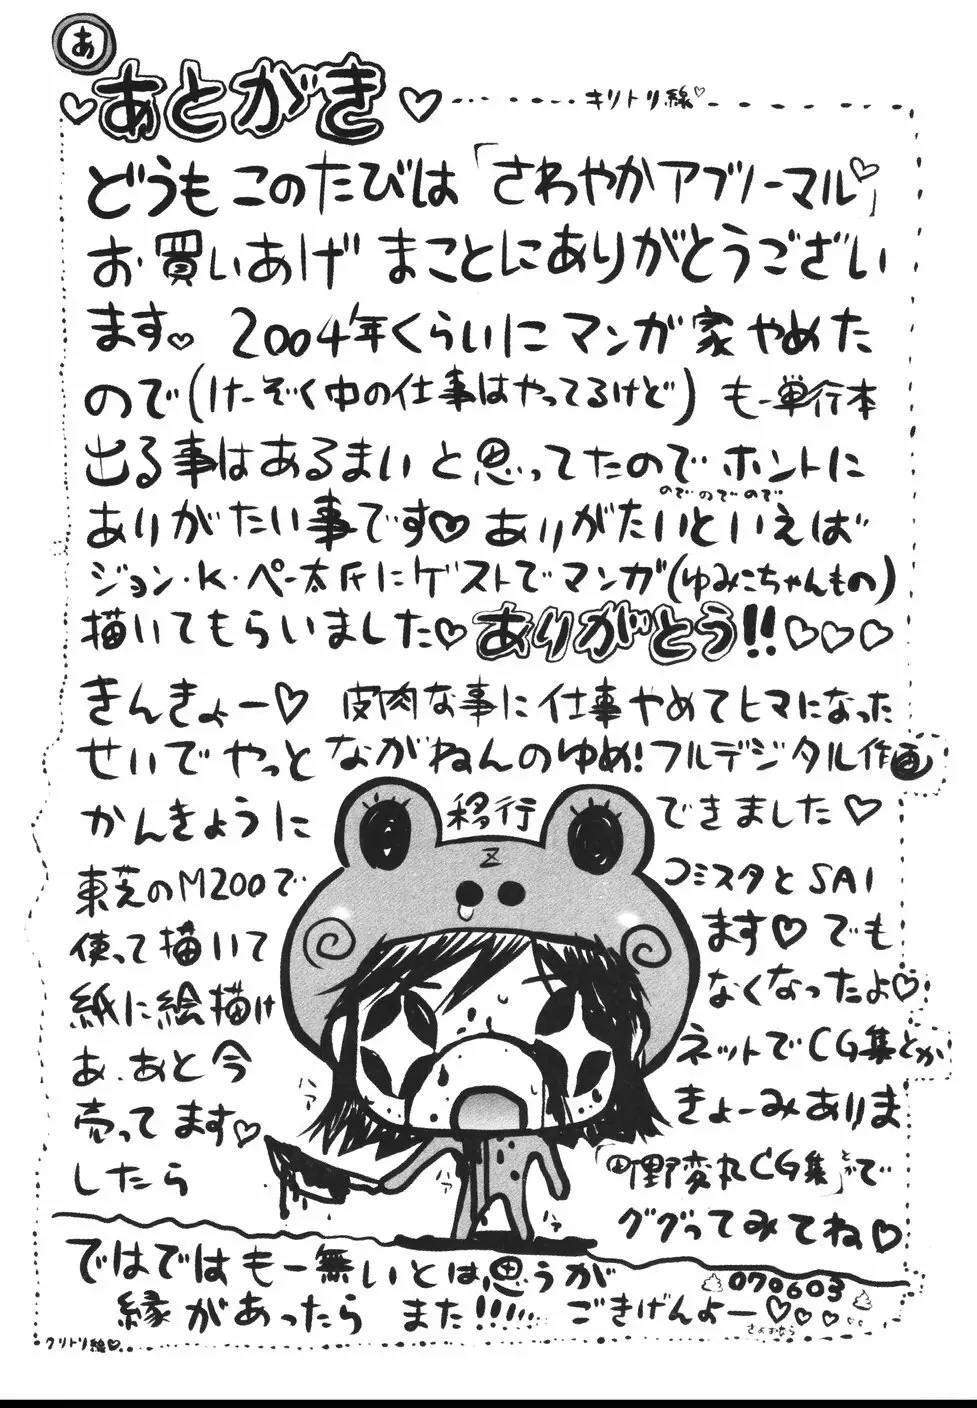 あ
あとがき
キリトリ線♡
どうも このたびは「さわやかアブノーマル」
お買いあげ まことにありがとうござい
ます♡ 2004年くらいに マンガ家 やめた
ので(けーぞく中の仕事はやってるけど) もー単行本
出る事はあるまい と思ってたので ホントに
のでのでので
ありがたい事です♡ ありがたいといえば
ジョン・K・ペー太氏にゲストでマンガ(ゆみこちゃんもの)
描いてもらいました♡ ありがとう!!♡♡♡
きんきょー♡ 皮肉な事に仕事やめてヒマになった
せいで やっと ながねんのゆめ!フルデジタル作画
かんきょうに 移行 できました♡
Z
東芝のM200で コミスタとSAI
使って描いて ます♡でも
紙に絵描け なくなったよ♡
あ、あと今 ネットでCG集とか
売ってます♡ きょーみありま
したら 「町野変丸CG集」とかで
ググってみてね♡
ハァ
ハァ
ハァ
ではでは もー無いとは思うが
070603
縁があったら また!!!!! ごきげんよー♡♡♡♡
さよおなら
クリトリ線♡